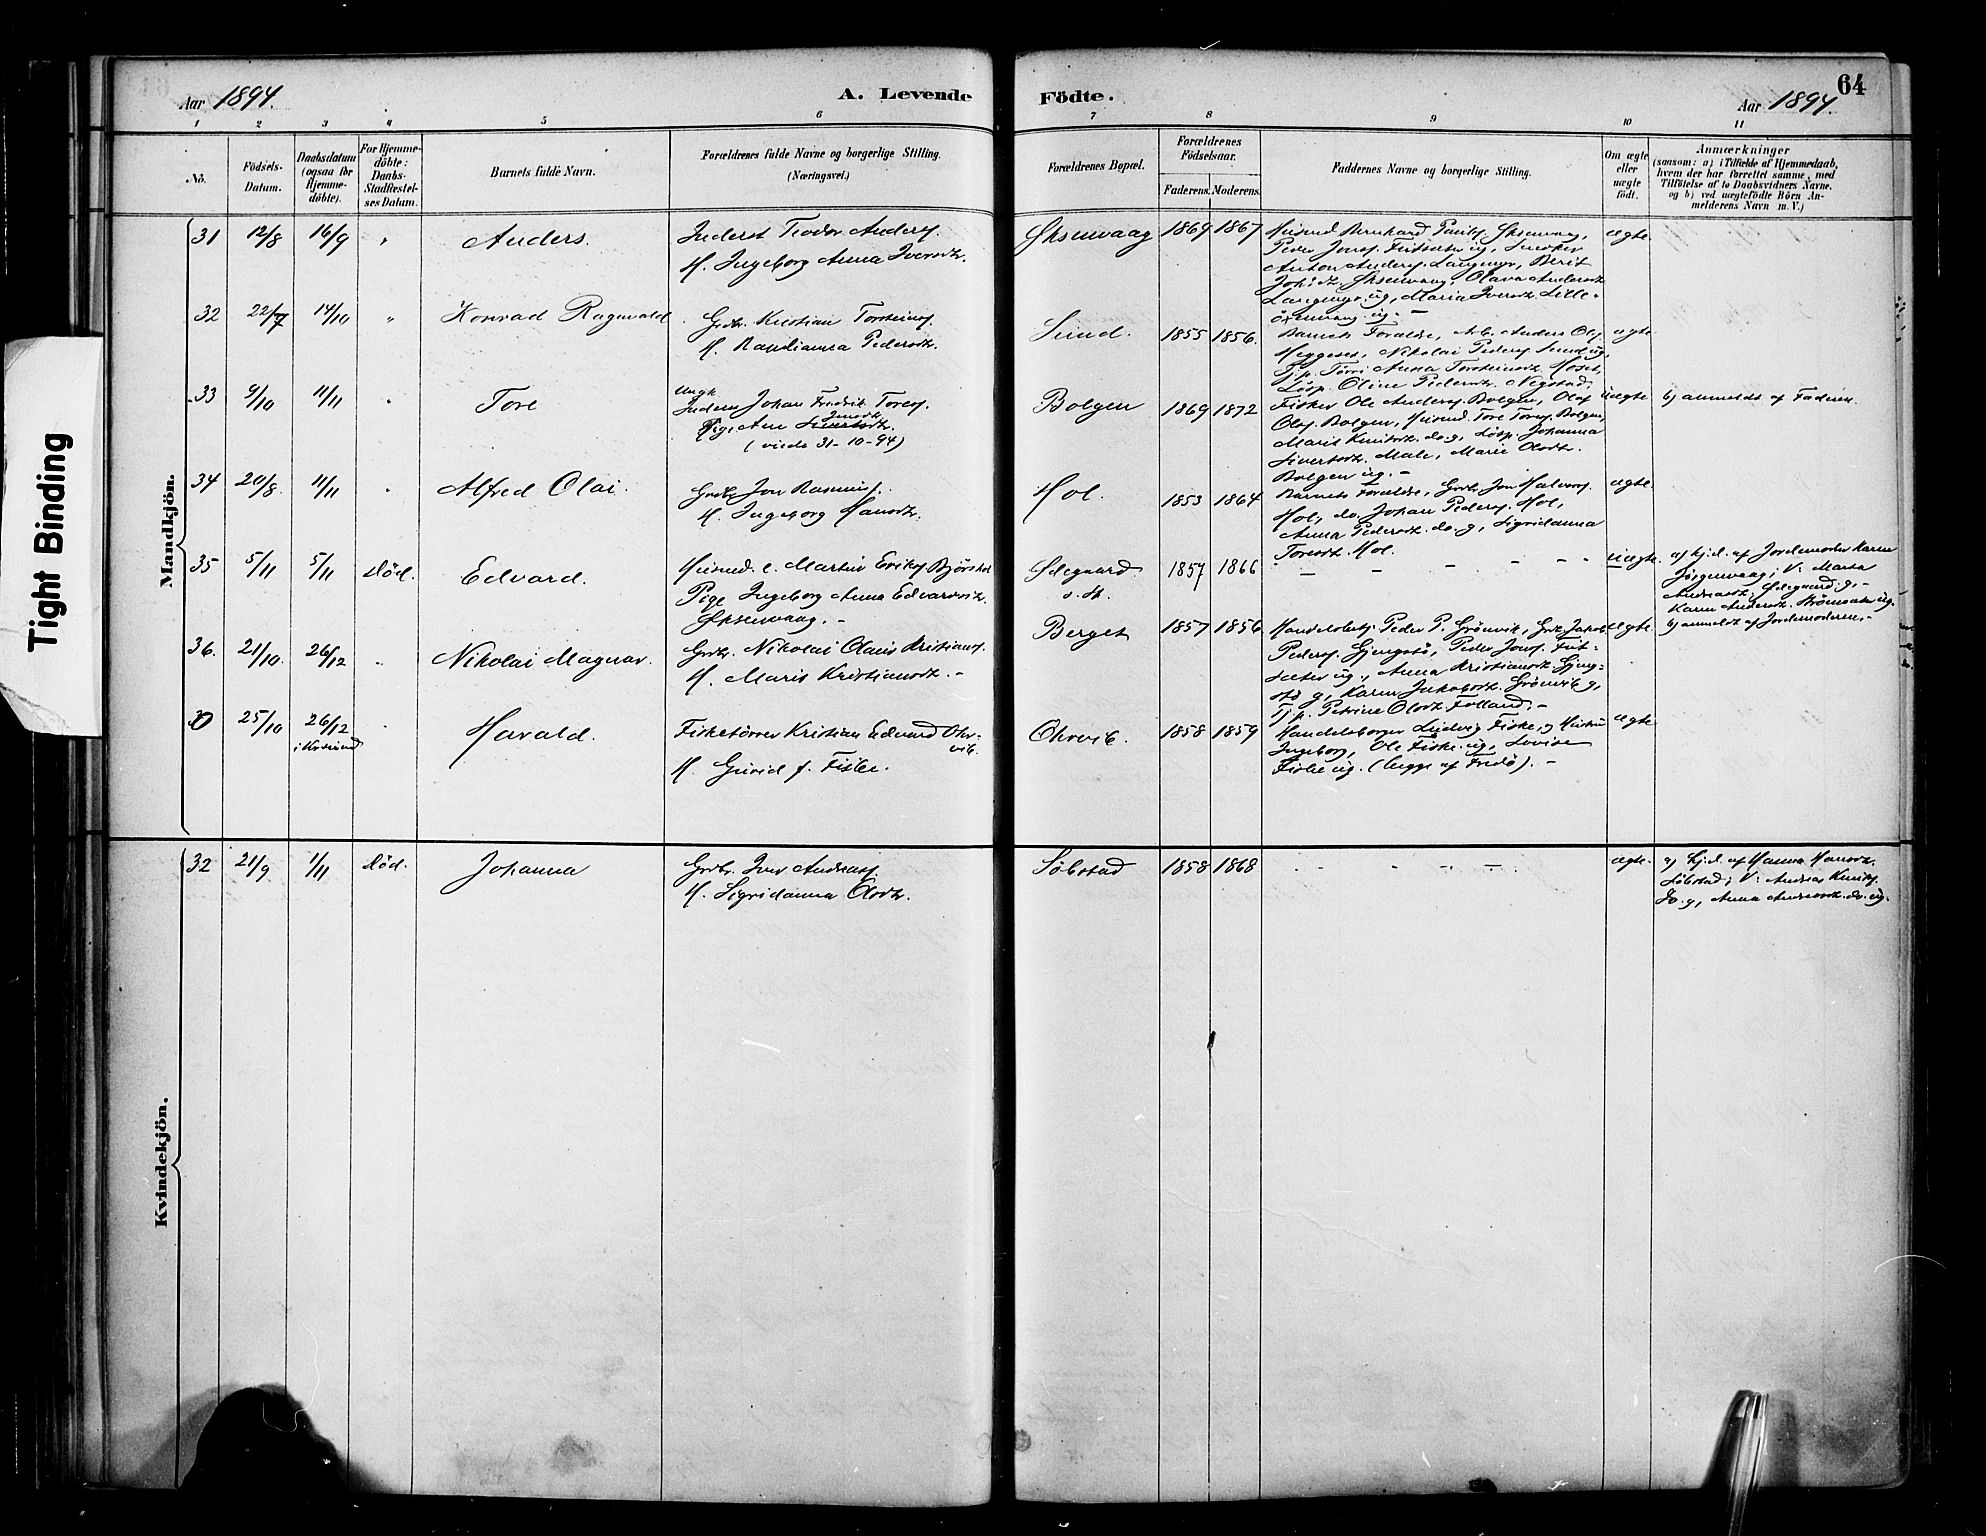 64
Aar 1894.
A. Levende
Födte.
Aar 1894.
1 2 3 4 5 6 7 8 9 10 11
No.
Födsels-
Datum.
Daabsdatum
(ogsaa for
Hjemme-
döbte).
For Hjemme-
döbte:
Daabs-
Stadfæstel-
ses Datum.
Barnets fulde Navn.
Forældrenes fulde Navne og borgerlige Stilling.
(Næringsvei.)
Forældrenes Bopæl.
Forældrenes
Födselsaar.
Faderens. Moderens.
Faddernes Navne og borgerlige Stilling.
Om ægte
eller
uægte
födt.
Anmærkninger
(saasom: a) i Tilfælde af Hjemmedaab,
hvem der har forrettet samme, med
Tilföielse af to Daabsvidners Navne,
og b) ved uægtefödte Börn An-
melderens Navn m. V.)
Tight Binding
Mandkjön.
31 12/8 16/9 " Anders.
Inderst Teodor Anders.
H. Ingeborg Anna Iversdt.
Öksenvaag 1869 1867
Bernhard Öksenvaag,
Peder Jonss.
Anton Anderss. Langmyr, Berit
Öksenvaag, Olava Andersdt.
Langmyr ug, Maria Iversdt. Lille-
öksenvaag ug. -
ægte
32 22/7 14/10 " Konrad Ragnvald
Grdbr. Kristian Torsteins.
H. Randianna Pedersdt.
Sund. 1855 1856.
Barnets Forældre, Arb. Anders Ols.
Heggeset, Nikolai Peders. Sund ug,
Tj.p. Anna Torsteinsdt. Moset,
Lösp. Oline Pedersdt. Negstad.
ægte
33 9/10 11/11 " Tore
Ungk.
Inders. Johan Fredrik Tores.
Pige Ane Sivertsdt.
(viede 31-10-94)
Bolgen 1869 1872
Fisker Ole Anders. Bolgen, Olaf
Ols. Bolgen, Tore Tores. Bolgen,
Marit Knutsdt. do. g, Lösp. Johanna
Sivertsdt. Male, Marie Olsdt.
Bolgen ug. -
uægte b) anmeldt af Faderen
34 20/8. 11/11 " Alfred Olai.
Grdbr. Jon Rasmus.
H. Ingeborg Hansdt.
Hol. 1853 1864
Barnets Forældre, Grdb. Jon Halvors.
Hol, do. Johan Peders. Hol,
Anna Pedersdt. do. g, Sigridanna
Toresdt. Hol.
ægte.
35 5/11 5/11 död. Edvard.
e. Martin Eriks. Björstad
Pige Ingeborg Anna Edvardsdt.
Öksenvaag. -
Ödegaard 1857 1866
- - - - - -
uægte.
a) hj.d. af Jordemoder Karen
Jörgenvaag; V: Marta
Andreasdt. Ödegaard g, -
Karen Andersdt. Strömsæter ug.
b) anmeldt af Jordemoderen. -
36. 21/10. 26/12 " Nikolai Magnar.
Grdbr. Nikolai Olaus Kristians.
H. Marit Kristiansdt. -
Berget 1857 1856
Handelsbetj. Peder P. Grönvik, Grk. Jakob
Peders. Gjengstö, Peder Jons.
sæter ug., Anna Kristiansdt. Gjeng-
stö g, Karen Jakobsdt. Grönvik g,
Tj.p. Petrine Olsdt. Folland. -
ægte
30 25/10 26/12 " Harald.
i Krsund
Fisketörrer Kristian Edvard Ohr-
vik.
H. Gurid f. Fiske.
Ohrvik. 1858 1859
Handelsborger Ludvig Fiske, g Hustru
Ingeborg, Ole Fiske ug, Lovise
Fiske ug. (begge af Fredö). -
ægte
Kvindekjön.
32 21/9 1/11 död. Johanna
Grdbr. Iver Andreass.
H. Sigridanna Olsdt.
Söbstad 1858 1868
- - - - -
ægte.
a) hj.d. af Hanna Hansdt.
Söbstad; V: Andreas Knuts.
do. g, Anna Andreasdt. do. ug.